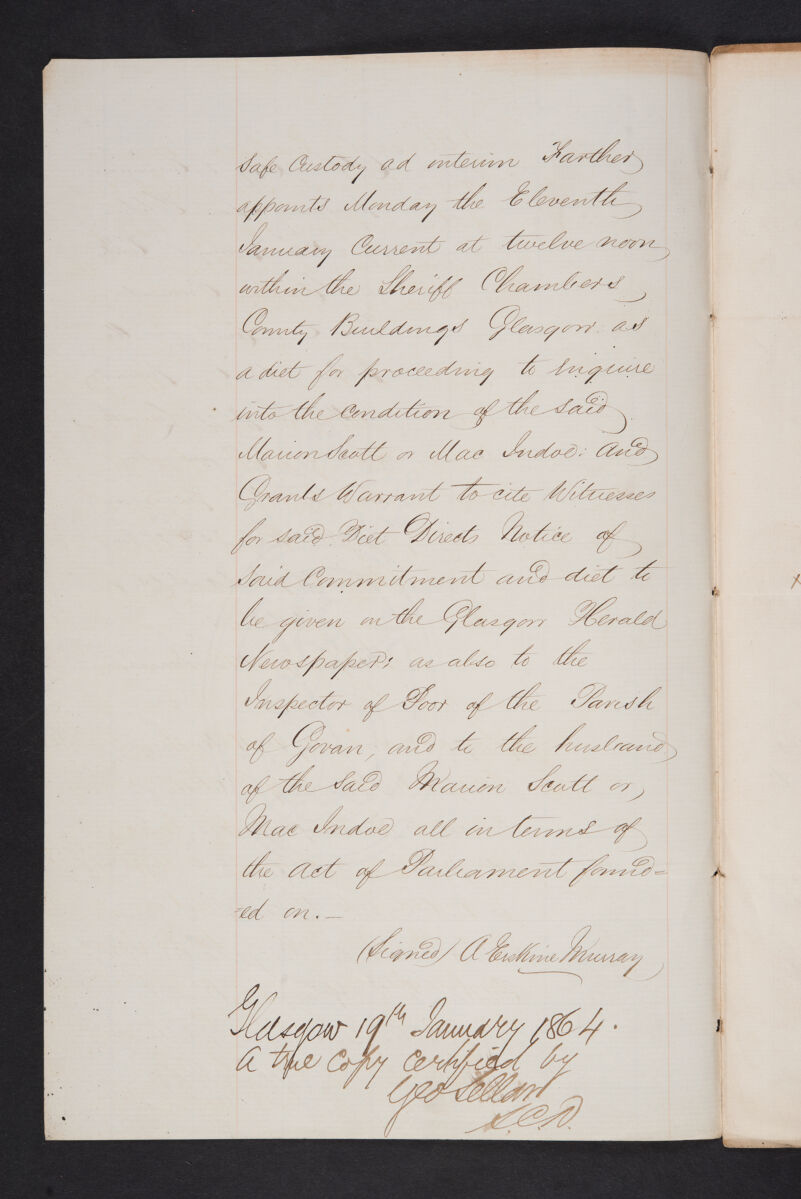 safe Custody ad interim Farther
appoints Monday the Eleventh
January Current at twelve noon
within the Sheriff Chambers
County Buildings Glasgow as
a diet for proceeding to inquire
into the condition of the said
Marion Scott or Mac Indoe: And
Grants Warrant to cite Witnesses
for said Diet Directs Notice of
said Commitment and diet to
be given in the Glasgow Herald
Newspaper; as also to the
Inspector of Poor of the Parish
of Govan, and to the husband
of the said Marion Scott or
Mac Indoe all in terms of
the Act of Parliament found=
=ed on.—
(Signed) A Erskine Murray
Glasgow 19th January 1864.
A true copy certified by
Geo Sellar